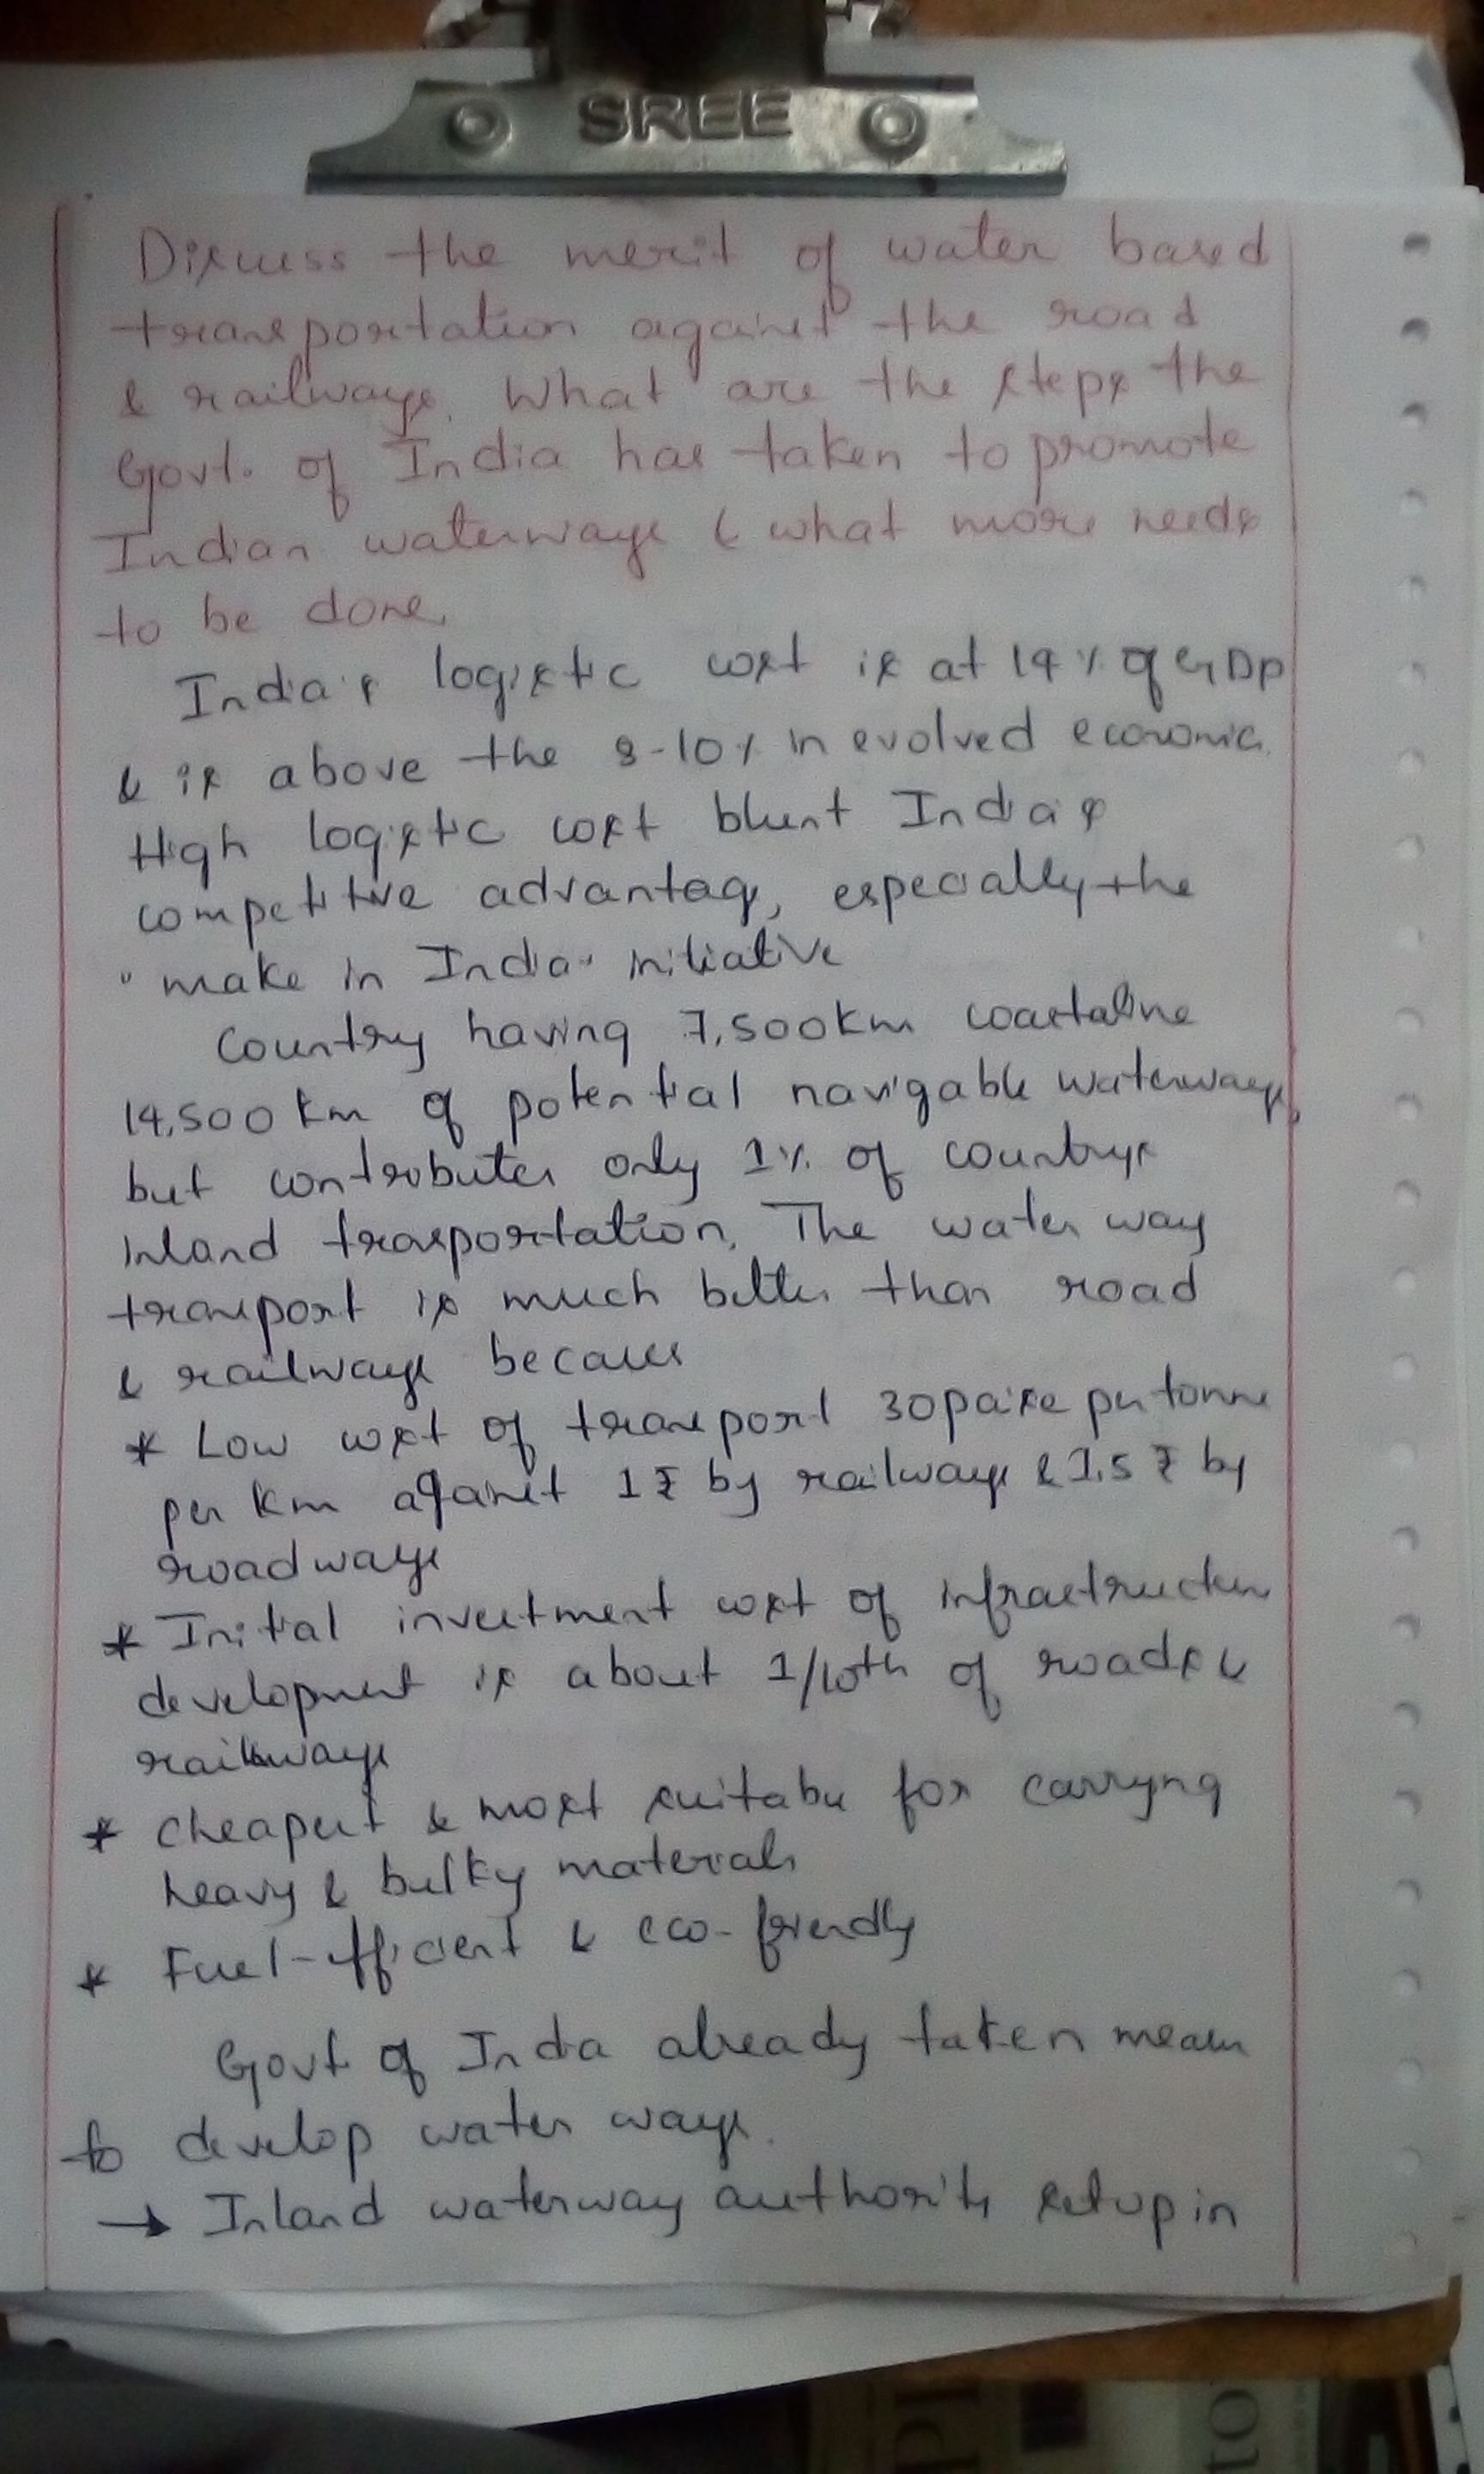 SREE
Discuss the merit of water based
transportation against the road
& railways. What are the steps the
Govt. of India has taken to promote
Indian waterways & what more needs
to be done.
India's logistic cost is at 14% of GDP
& is above the 8-10% in evolved economies.
High logistic cost blunt India's
competitive advantag, especially the
"make in India" initiative
Country having 7,500km coastaline
14,500 km of potential navigable waterways,
but contributes only 1% of countrys
inland trasportation. The water way
transport is much better than road
& railways becaues
* Low cost of transport 30paise per tonne
per km against 1₹ by railways & 1.5 ₹ by
roadways
* Initial investment cost of infrastructure
development is about 1/10th of roads &
railways
* cheapest & most suitable for carryng
heavy & bulky materials
* Fuel-efficient & eco-friendly
Govt of India already taken means
to develop water ways.
→ Inland waterway authority setup in